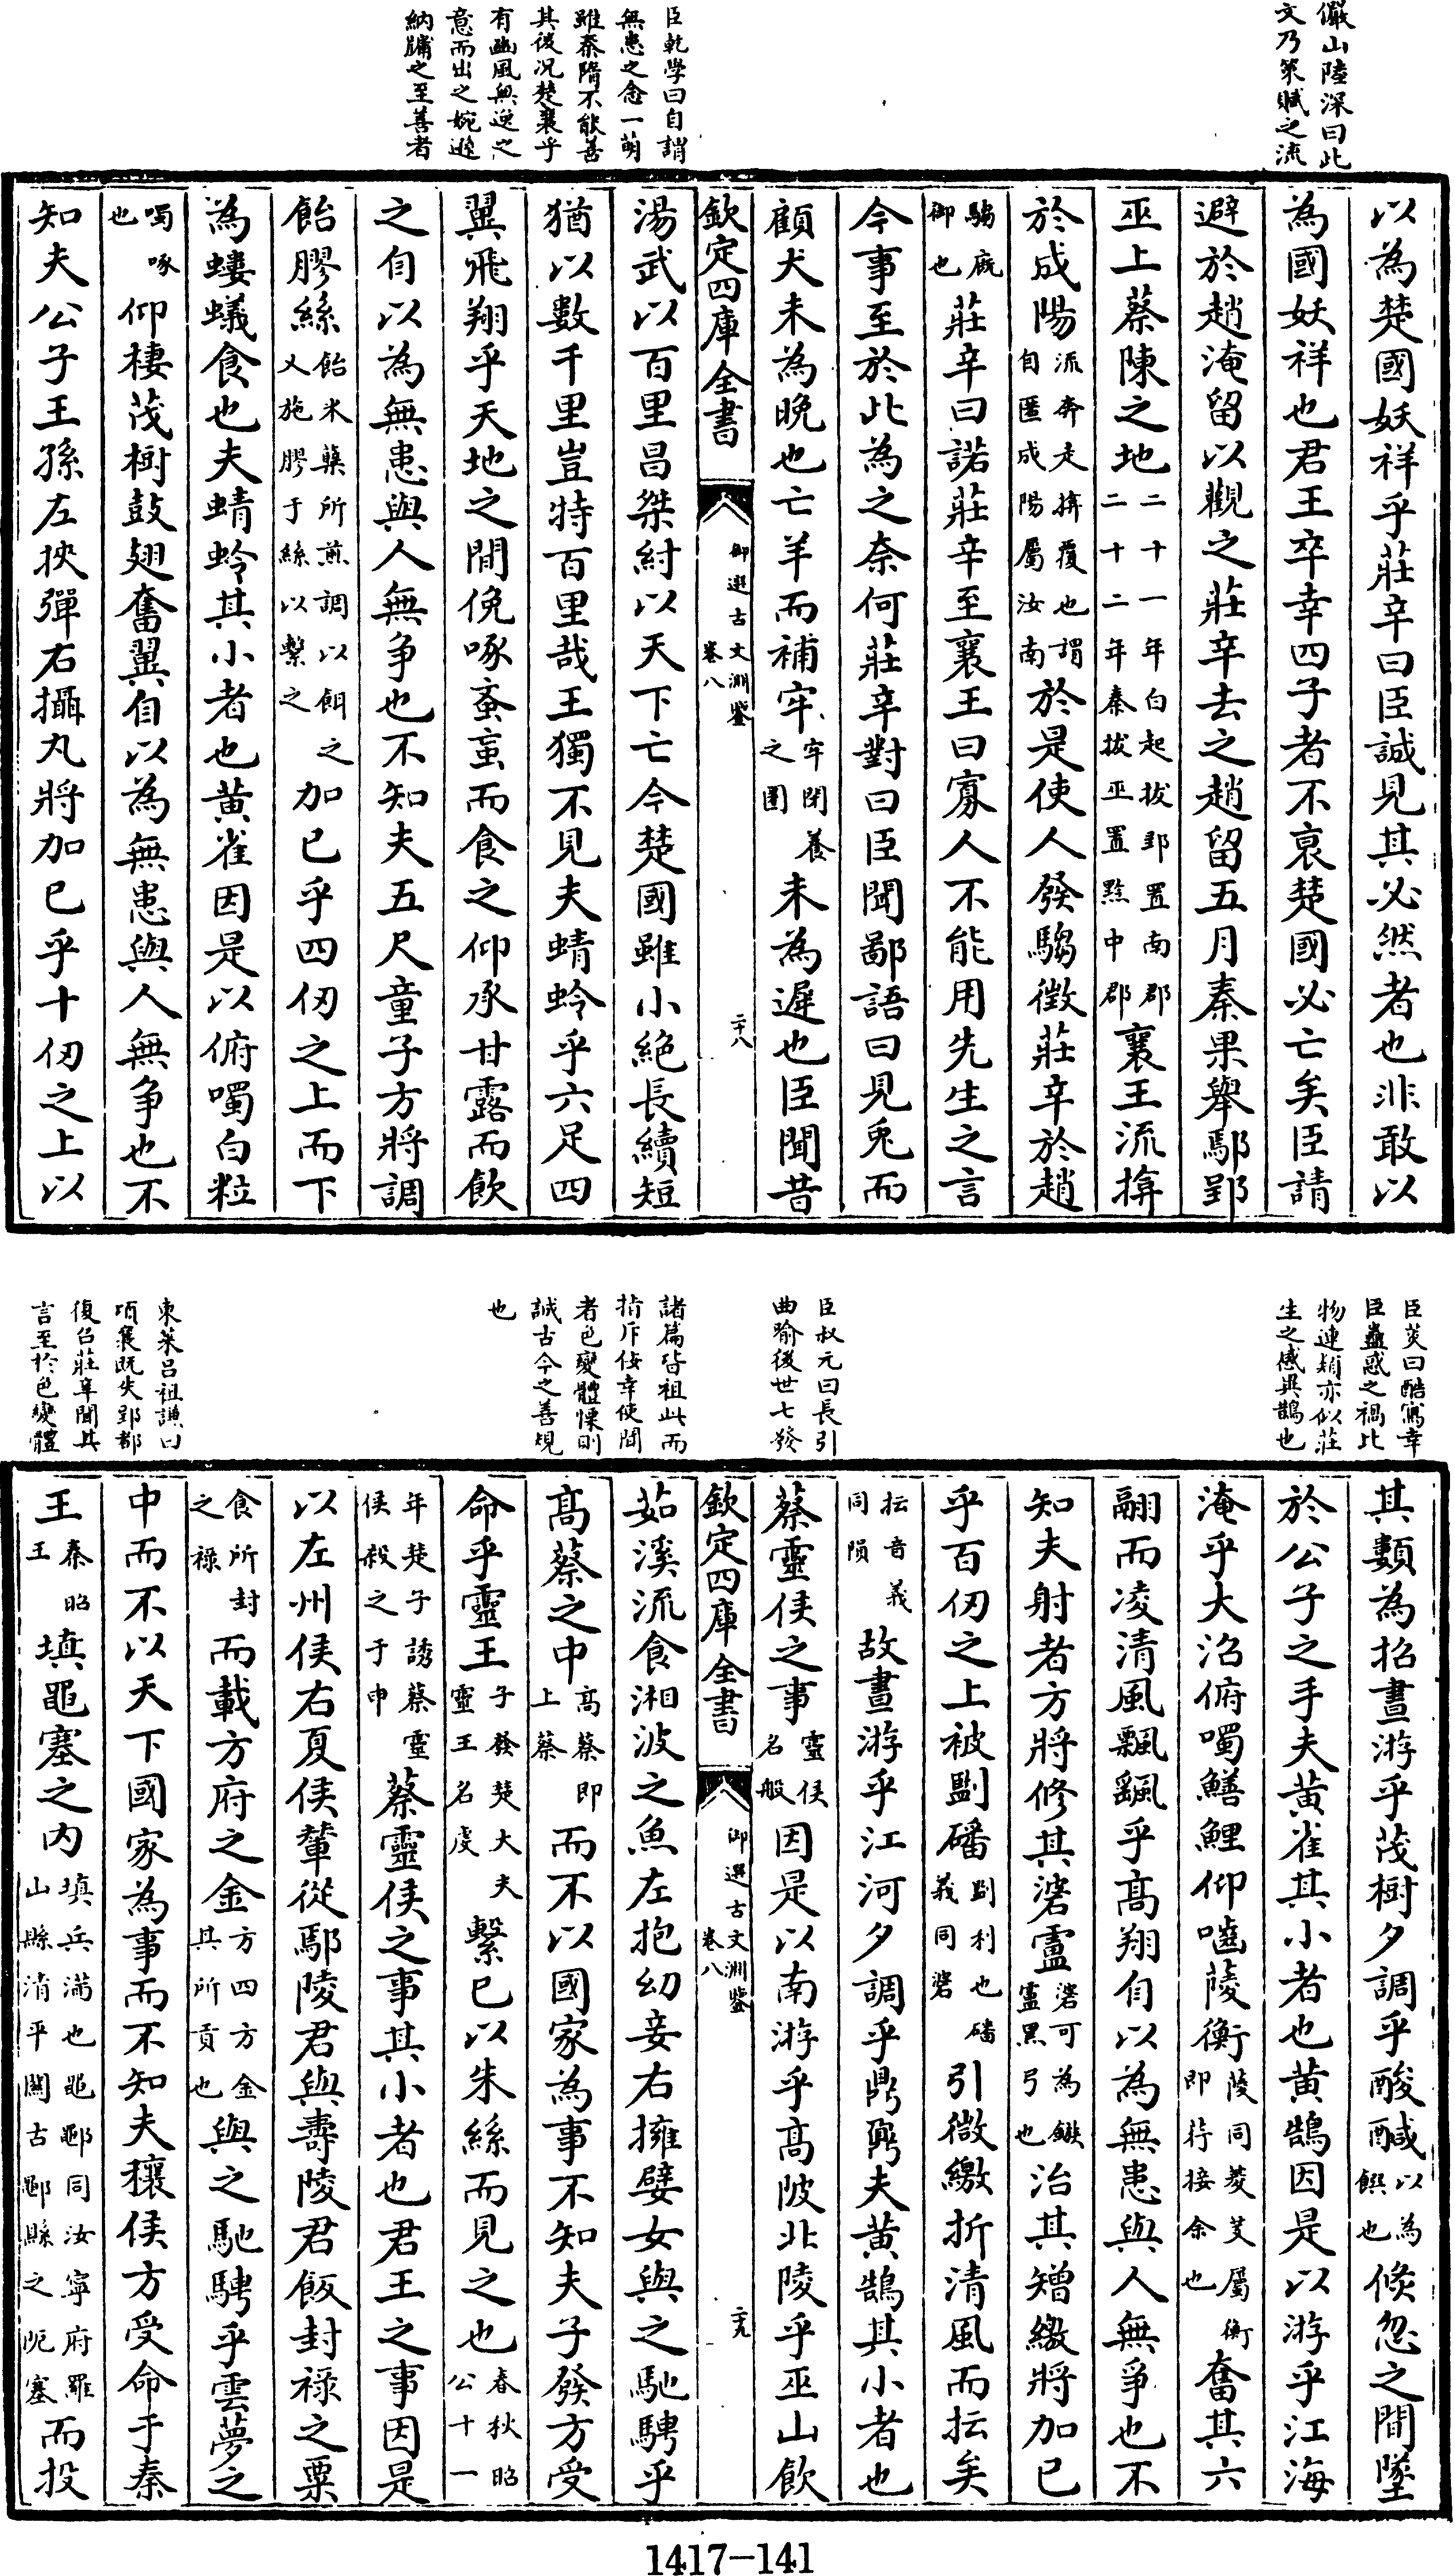 儼山陸深曰此
文乃策賦之流
臣乾學曰自謂
無患之念一萌
雖秦隋不能善
其後况楚襄乎
有幽風無逸之
意而出之婉遜
納牖之至善者
以為楚國妖祥乎莊辛曰臣誠見其必然者也非敢以
為國妖祥也君王卒幸四子者不衰楚國必亡矣臣請
避於趙淹留以觀之莊辛去之趙留五月秦果舉鄢郢
巫上蔡陳之地二十一年白起拔郢置南郡二十二年秦拔巫置黔中郡襄王流揜
於成陽流奔走揜覆也謂自匿成陽屬汝南於是使人發騶徵莊辛於趙
騶廐御也莊辛曰諾莊辛至襄王曰寡人不能用先生之言
今事至於此為之奈何莊辛對曰臣聞鄙語曰見兎而
顧犬未為晚也亡羊而補牢牢閑養之圈未為遲也臣聞昔
欽定四庫全書 御選古文淵鑒 卷八 二十八
湯武以百里昌桀紂以天下亡今楚國雖小絶長續短
猶以數千里豈特百里哉王獨不見夫蜻蛉乎六足四
翼飛翔乎天地之間俛啄蚉䖟而食之仰承甘露而飲
之自以為無患與人無争也不知夫五尺童子方將調
飴膠絲飴米蘖所煎調以餌之又施膠于絲以繫之加己乎四仞之上而下
為螻蟻食也夫蜻蛉其小者也黄雀因是以俯噣白粒
噣啄也仰棲茂樹鼓翅奮翼自以為無患與人無争也不
知夫公子王孫左挾彈右攝丸將加己乎十仞之上以
臣英曰酷寫幸
臣蠱惑之禍比
物連類亦似莊
生之感異鵲也
臣叔元曰長引
曲喻後世七發
諸篇皆祖此而
指斥佞幸使聞
者色變體慄則
誠古今之善規
也
東萊吕祖謙曰
頃襄既失郢都
復召莊辛聞其
言至於色變體
其類為招晝游乎茂樹夕調乎酸醎以為饌也倐忽之間墜
於公子之手夫黄雀其小者也黄鵠因是以游乎江海
淹乎大沼俯噣鱔鯉仰嚙䔖衡䔖同菱芰屬衡即荇接余也奮其六
翮而凌清風飄飖乎高翔自以為無患與人無爭也不
知夫射者方將修其碆盧碆可為鏃盧黑弓也治其矰繳將加己
乎百仞之上被劅磻劅利也磻義同碆引微繳折清風而抎矣
抎音義同隕故晝游乎江河夕調乎鼎鼐夫黄鵠其小者也
蔡靈侯之事靈侯名般因是以南游乎高陂北陵乎巫山飲
欽定四庫全書 御選古文淵鑒 卷八 二十九
茹溪流食湘波之魚左抱幼妾右擁嬖女與之馳騁乎
高蔡之中高蔡即上蔡而不以國家為事不知夫子發方受
命乎靈王子發楚大夫靈王名虔繫己以朱絲而見之也春秋昭公十一
年楚子誘蔡靈侯殺之于申蔡靈侯之事其小者也君王之事因是
以左州侯右夏侯輦從鄢陵君與壽陵君飯封禄之粟
食所封之禄而載方府之金方四方金其所貢也與之馳騁乎雲夢之
中而不以天下國家為事而不知夫穰侯方受命于秦
王秦昭王填黽塞之内填兵滿也黽鄳同汝寧府羅山縣清平關古鄳縣之阨塞而投
1417-141